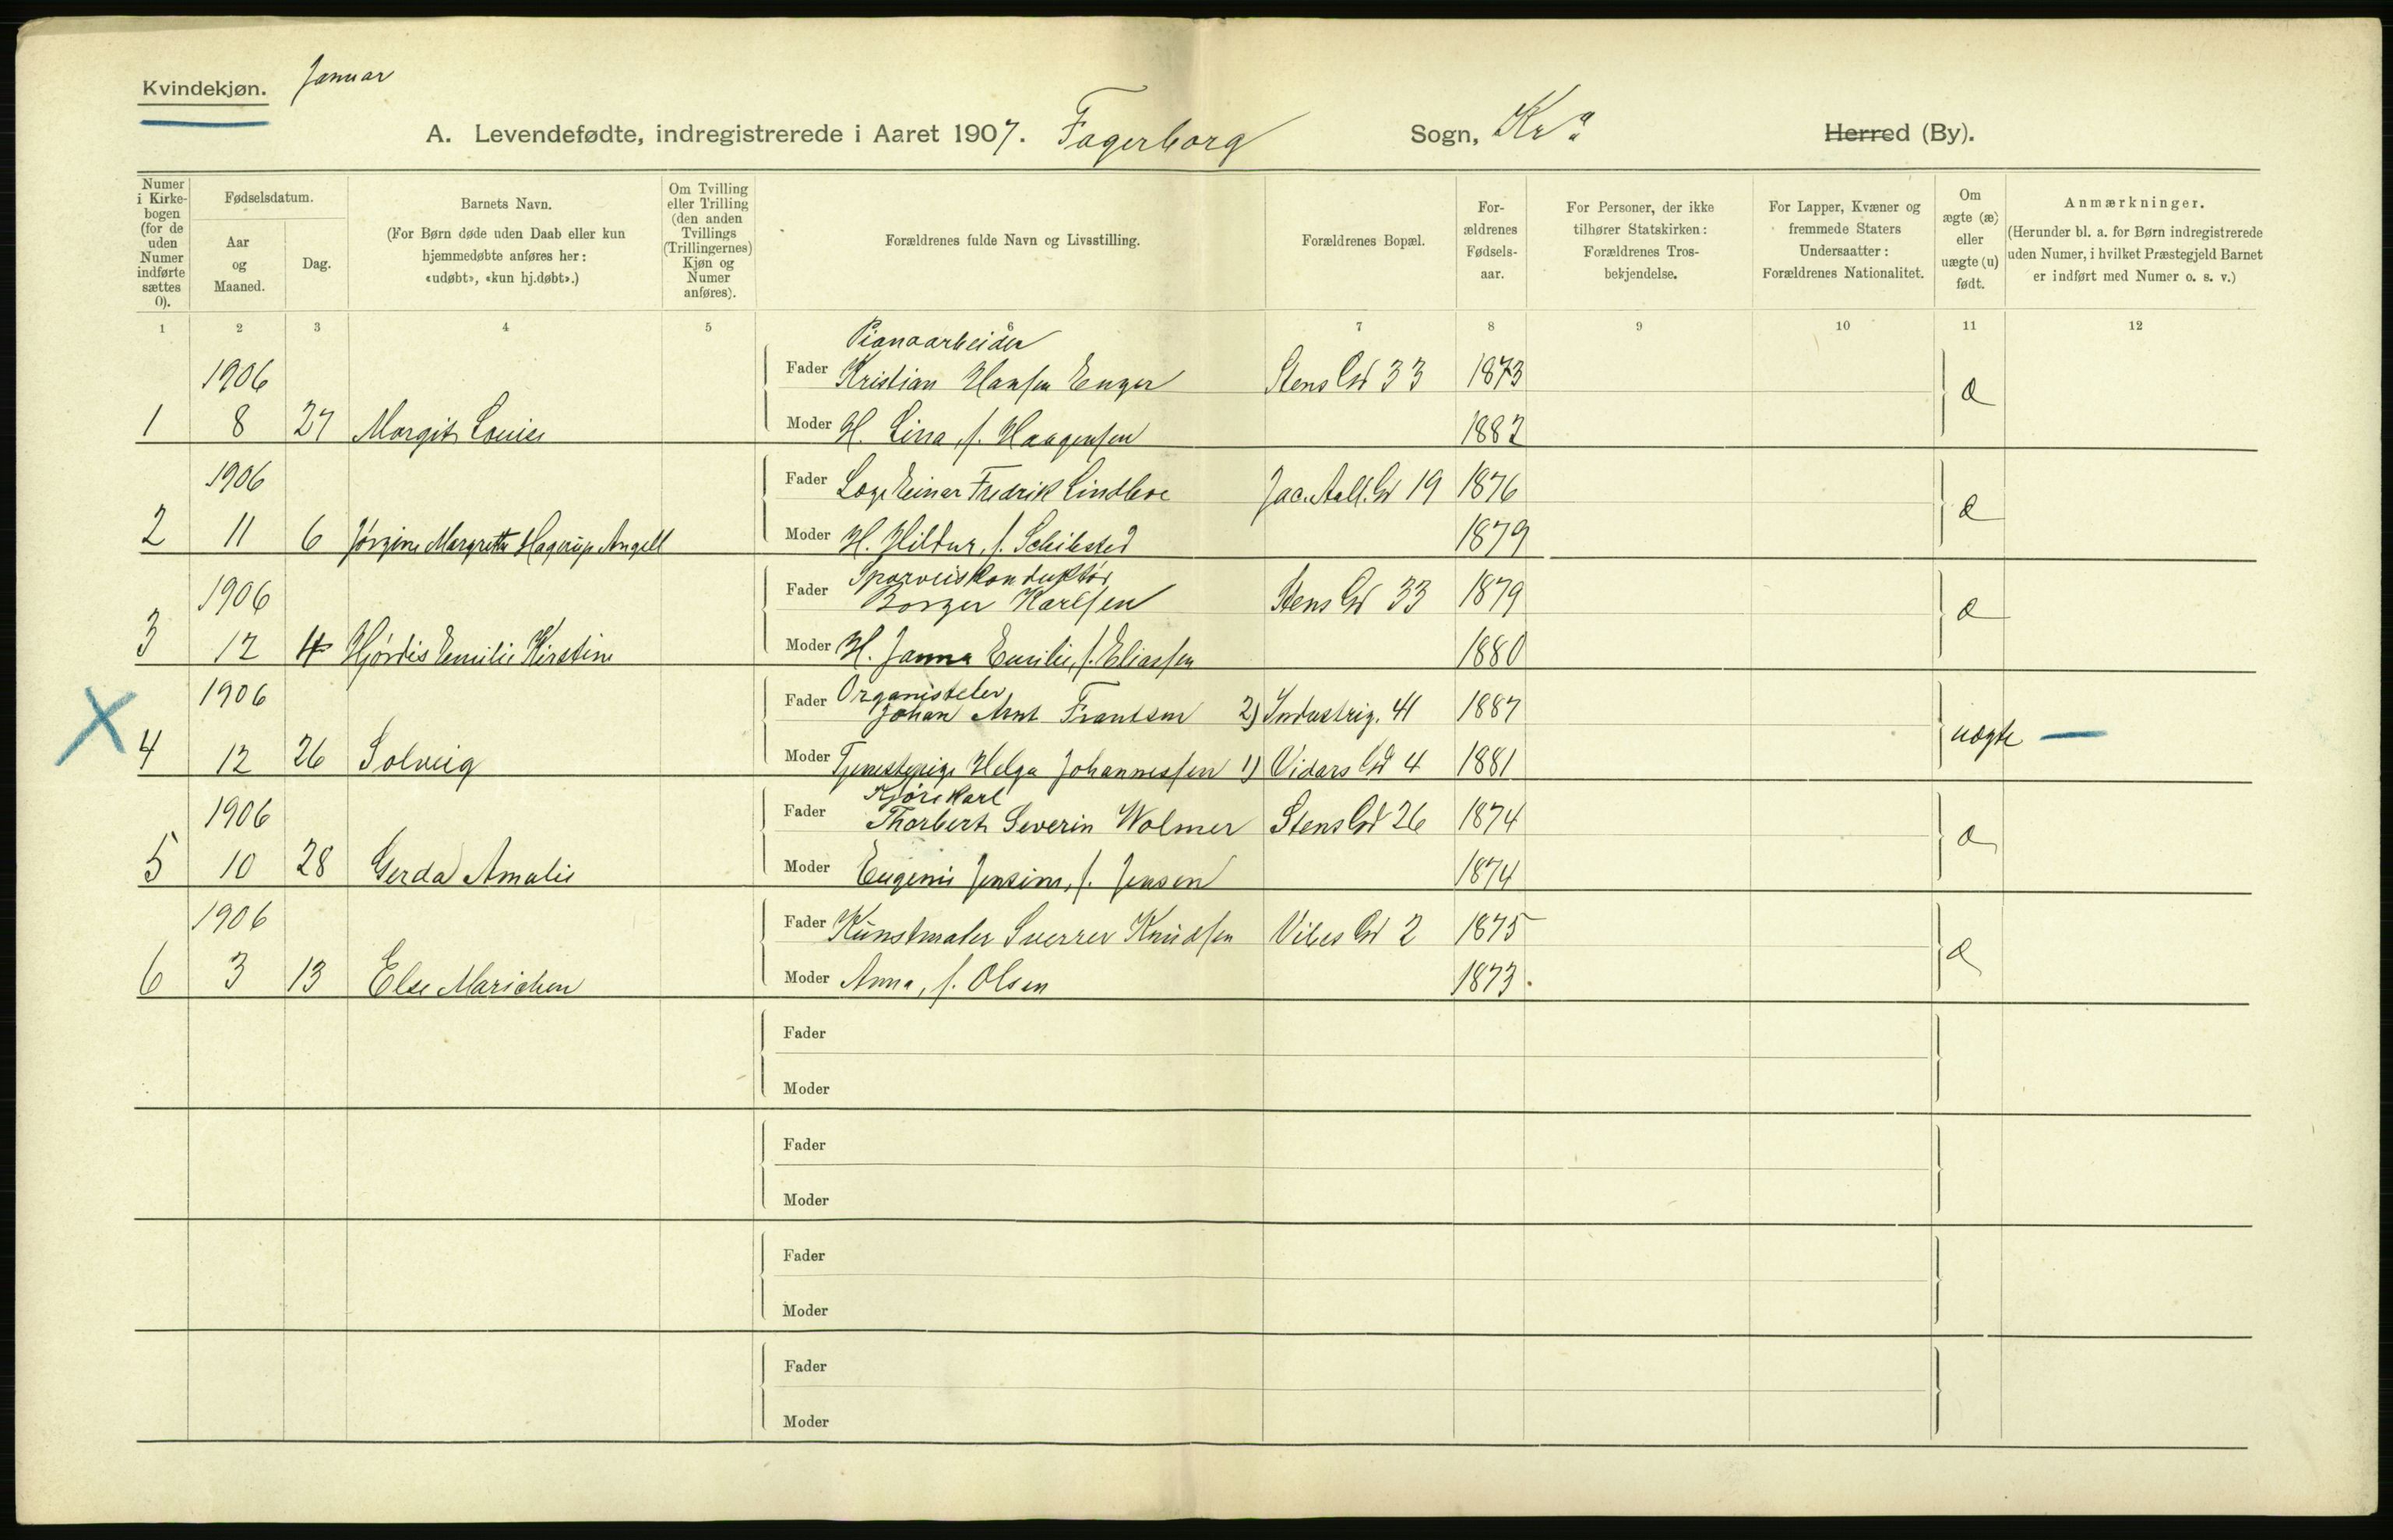 Kvindekjøn. Januar
A. Levendefødte, indregistrerede i Aaret 1907. Fagerborg Sogn, Kr.a Herred (By).
Numer i Kirkebogen (for de uden Numer indførte sættes 0).
Fødselsdatum.
Aar og Maaned.
Dag.
Barnets Navn.
(For Børn døde uden Daab eller kun hjemmedøbte anføres her: «udøbt», «kun hj.døbt».)
Om Tvilling eller Trilling (den anden Tvillings (Trillingernes) Kjøn og Numer anføres).
Forældrenes fulde Navn og Livsstilling.
Forældrenes Bopæl.
Forældrenes Fødselsaar.
For Personer, der ikke tilhører Statskirken: Forældrenes Trosbekjendelse.
For Lapper, Kvæner og fremmede Staters Undersaatter: Forældrenes Nationalitet.
Om ægte (æ) eller uægte (u) født.
Anmærkninger.
(Herunder bl. a. for Børn indregistrerede uden Numer, i hvilket Præstegjeld Barnet er indført med Numer o. s. v.)
1 2 3 4 5 6 7 8 9 10 11 12
Pianoarbeider
1906 Fader Kristian Hansen Enger Stens Gd 33 1873 æ
1 8 27 Margit Louise Moder H. Lina, f. Haagensen 1882
1906 Fader Einar Fredrik Lindboe Jac. Aall. Gd 19 1876 æ
2 11 6 Jørgine Margrethe Hagerup Angell Moder H. Hildur, f. Schibsted 1879
Sporveiskonduktør
1906 Fader Borger Karlsen Stens Gd 33 1879 æ
3 12 4 Hjørdis Emilie Kirstine Moder H. Janna Emilie, f. Eliassen 1880
Organistelev
1906 Fader Johan Arnt Frantsen 2) Industrig. 41 1887 uægte —
X 4 12 26 Solveig Moder Tjenestepige Helga Johannessen 1) Vidars Gd 4 1881
Kjørekarl
1906 Fader Thorbert Severin Wolmer Stens Gd 26 1874 æ
5 10 28 Gerda Amalie Moder Eugenie Jensine, f. Jensen 1874
1906 Fader Kunstmaler Sverrer Knudsen Vibes Gd 2 1875 æ
6 3 13 Else Marichen Moder Anna, f. Olsen 1873.
Fader
Moder
Fader
Moder
Fader
Moder
Fader
Moder